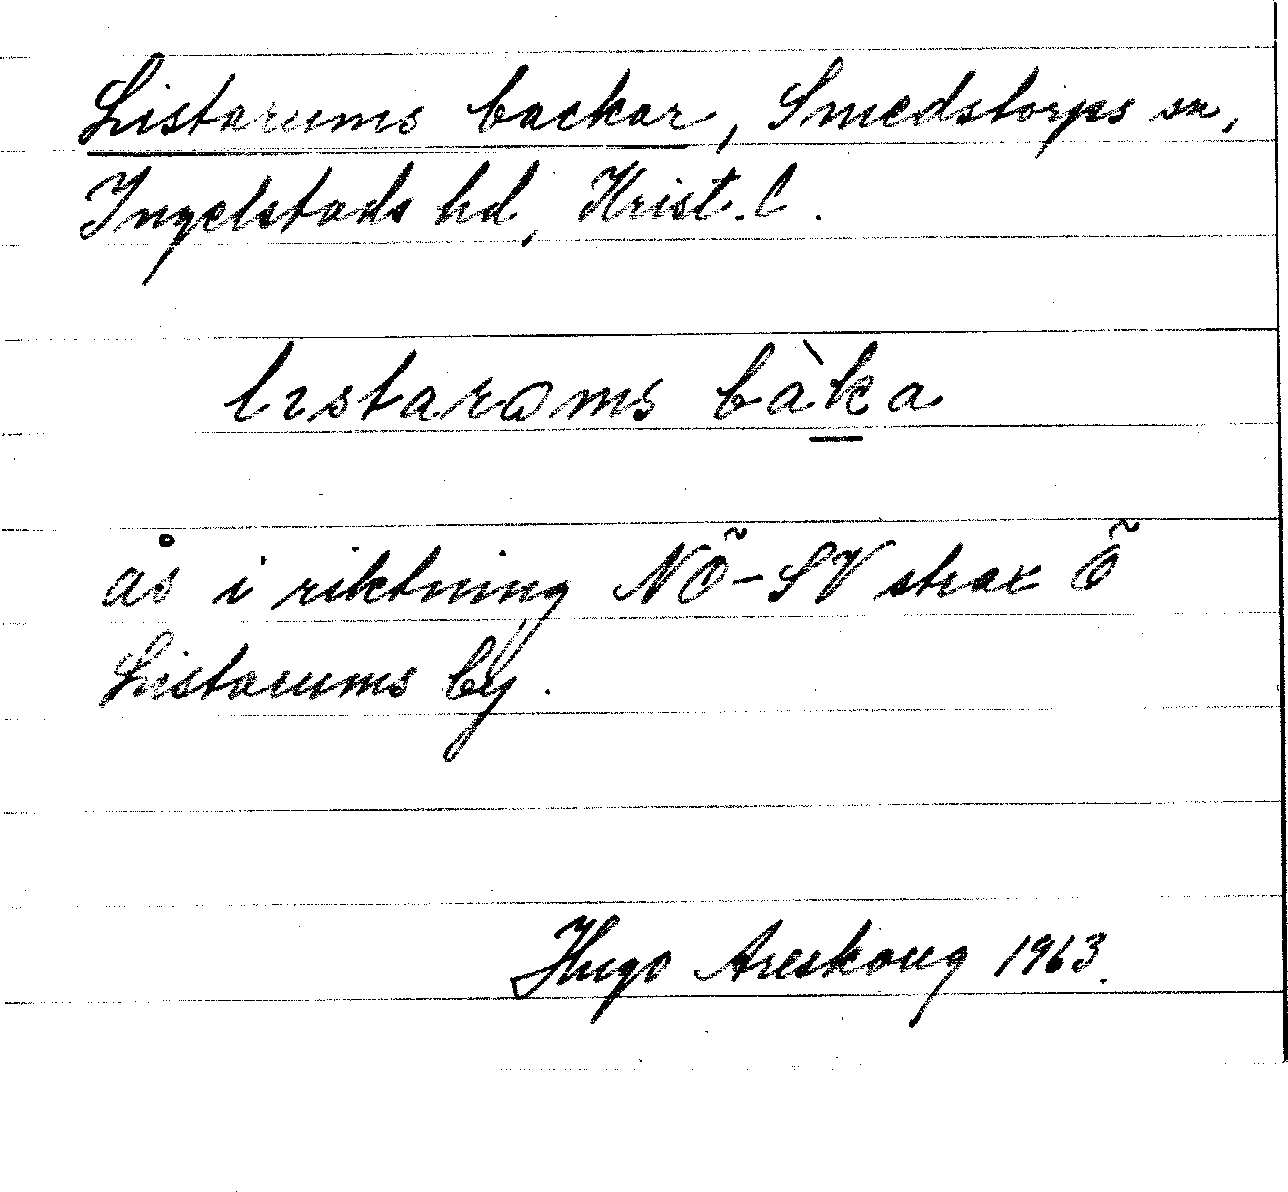 Listarums backar, Smedstorps sn,
Ingelstads hd, Krist. l.
lıstarωms bàka
ås i riktning NÖ-SV strax Ö
Listarums by.
Hugo Areskoug 1963.